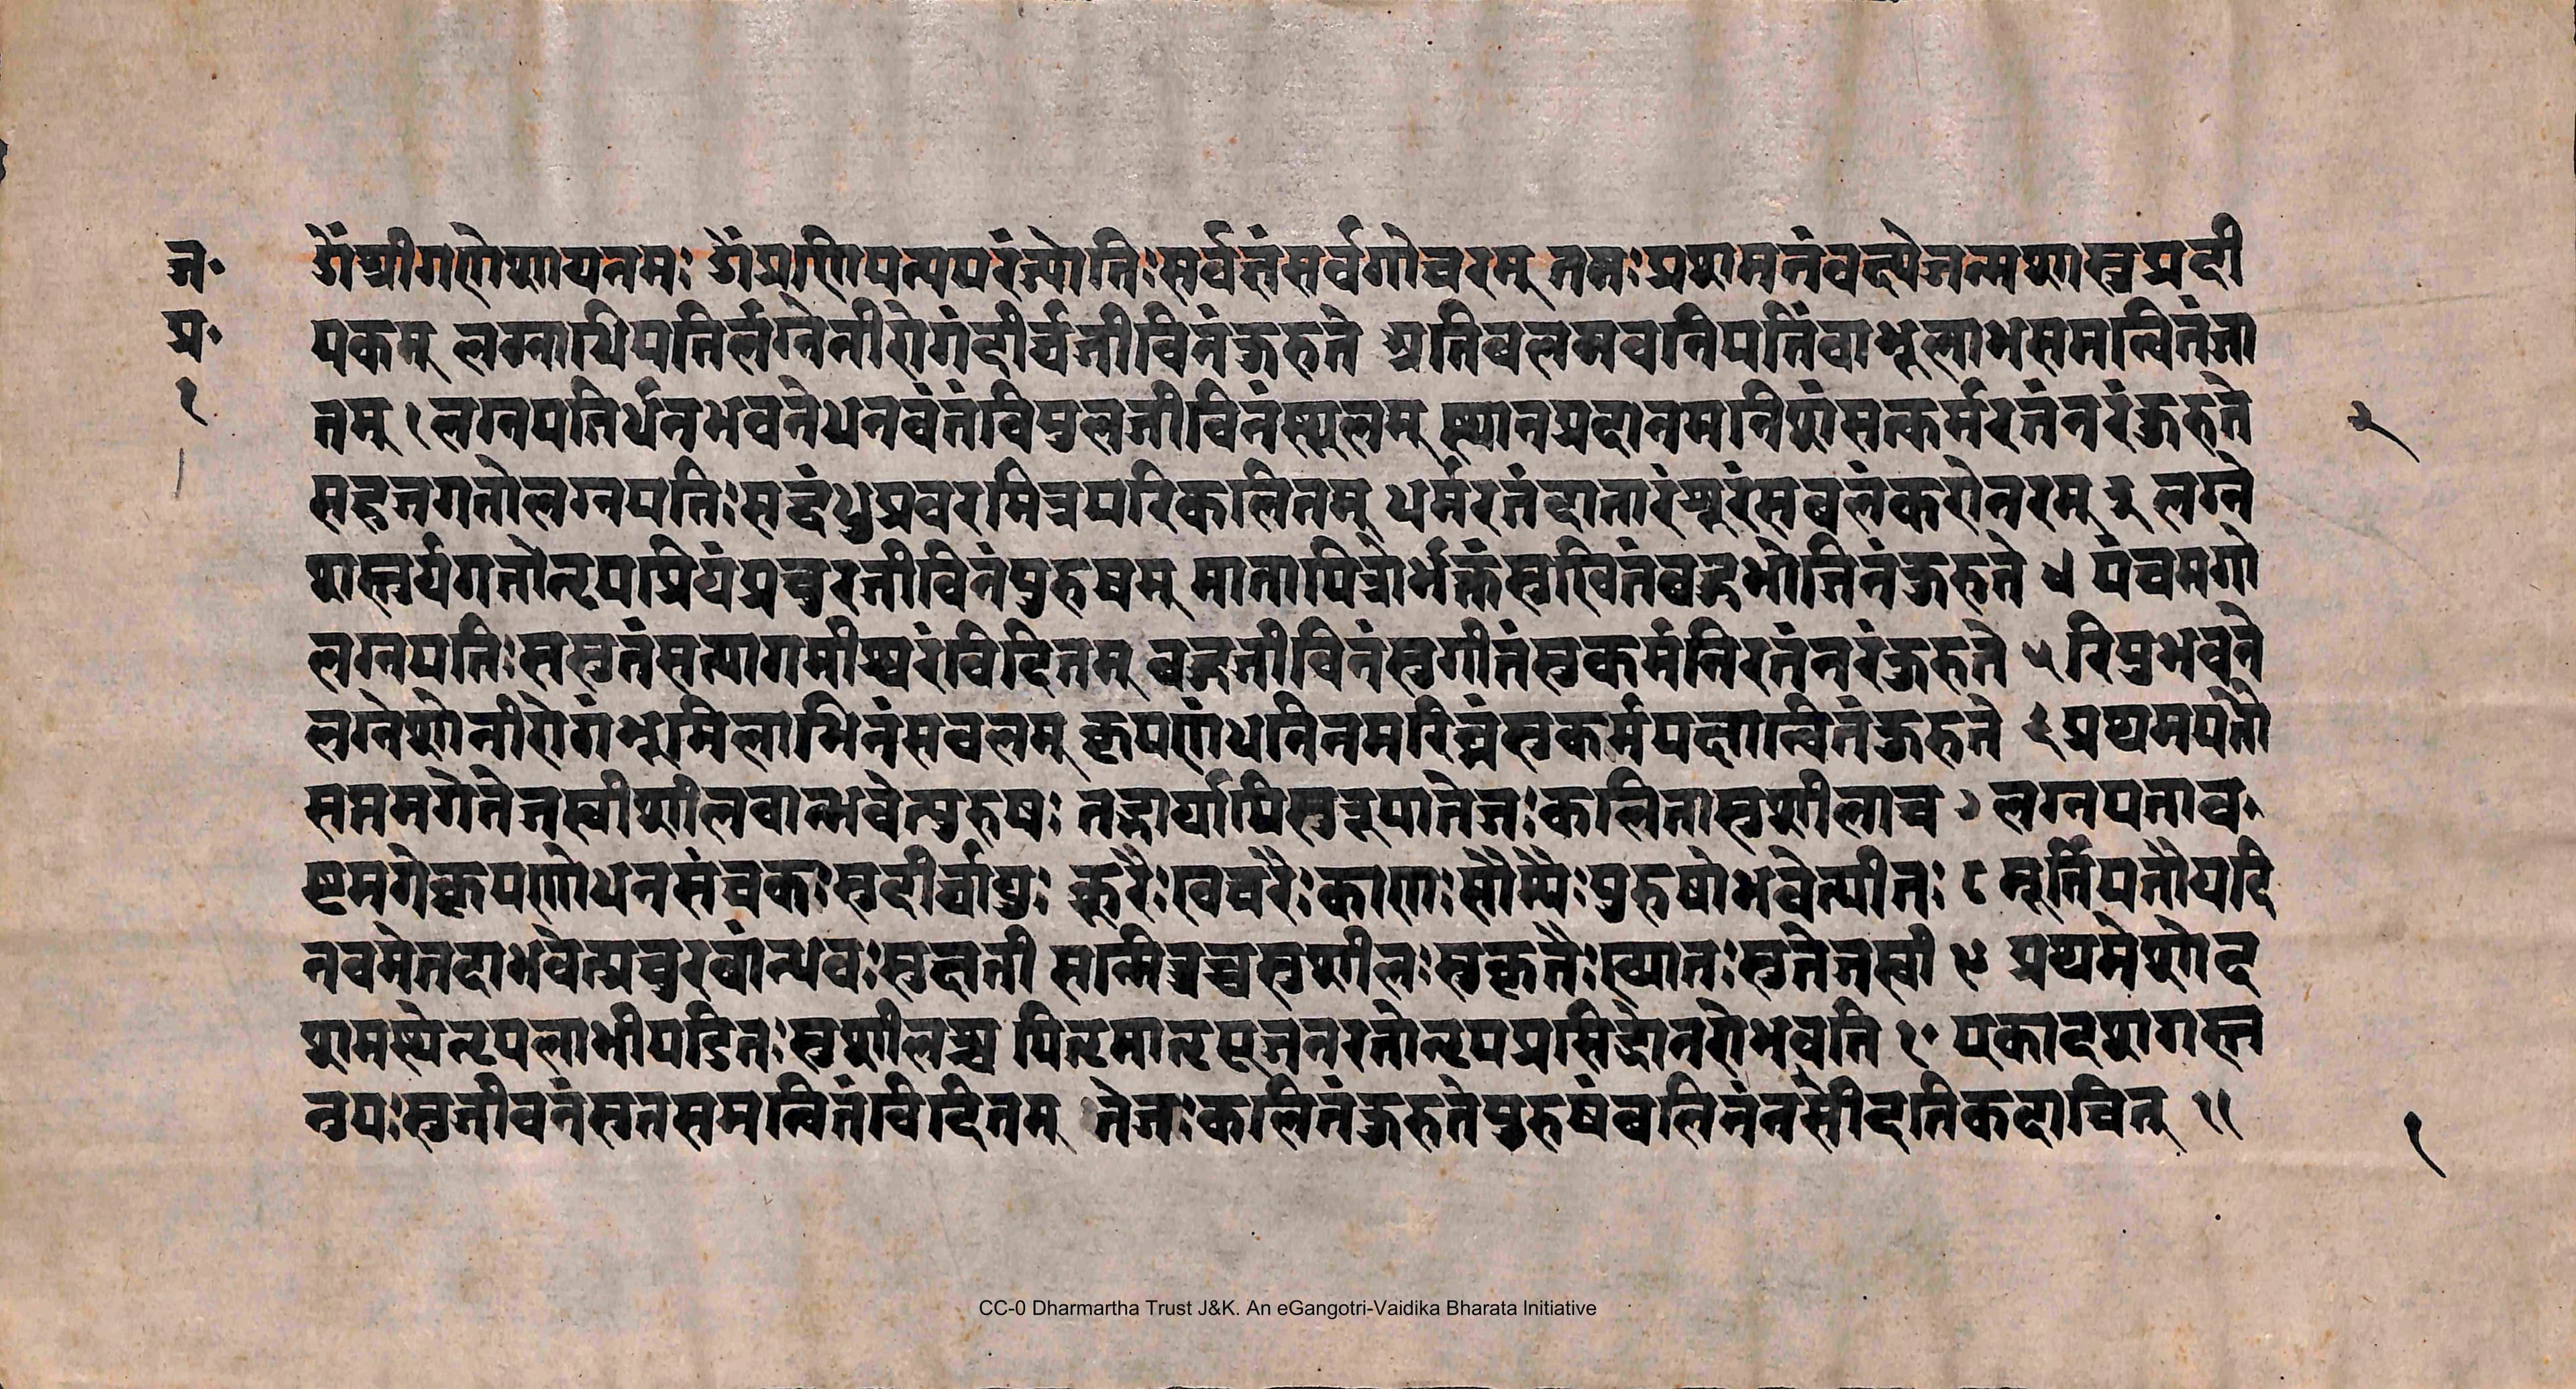 ज॰ ओंश्रीगणेशायनमः ओंप्रणिपत्यपरंज्योतिःसर्वज्ञंसर्वगोचरम् ततःप्रशामतंवक्ष्येजन्मशास्त्रप्रदी
प्र॰ पकम् लग्नाधिपतिर्लग्नेनीरोगंदीर्घजीविनंकुरुते अतिबलमवनिपतिंवाभूलाभसमन्वितंजा
१ तम् १ लग्नपतिर्धनभवनेधनवंतंविपुलजीविनंस्थूलम् स्थानप्रदानमनिशंसत्कर्मरतंनरंकुरुते २
सहजगतोलग्नपतिःसद्बंधुप्रवरमित्रपरिकलितम् धर्मरतंदातारंशूरंसबलंकरोतनरम् ३ लग्ने
शस्तुर्यगतोनृपप्रियंप्रचुरजीविनंपुरुषम् मातापित्रोर्भक्तंसुखितंबहुभोजिनंकुरुते ४ पंचमगो
लग्नपतिःससुतंसत्यागमीश्वरंविदितम् बहुजीविनंसुगीतंसुकर्मनिरतंनरंकुरुते ५ रिपुभवने
लग्नेशोनीरोगंभूमिलाभिनंसबलम् कृपणंधनिनमरिघ्नंसुकर्मपक्षान्वितंकुरुते ६ प्रथमपतौ
सप्तमगेतेजस्वीशीलवान्भवेत्पुरुषः तद्भार्यापिसुरूपातेजःकलितासुशीलाच ७ लग्नपताव॰
ष्टमगेकृपणोधनसंचकःसुदीर्घायुः क्रूरैःखचरैःकाणःसौम्यैःपुरुषोभवेत्पीतः ८ मूर्तिपतौयदि
नवमेतदाभवेत्प्रचुरबांन्धवःसुज्ञानी सन्मित्रश्चसुशीलःसुकृतैःख्यातःसुतेजस्वी ९ प्रथमेशोद
शमस्थेनृपलाभीपडितःसुशीलश्च पितृमातृपूजनरतोनृपप्रसिद्धोनरोभवति १॰ एकादशगस्त
नुपःसुजीवनंसुतसमन्वितंविदितम् तेजःकलितंकुरुतेपुरुषंबलिनंनसीदतिकदाचित् ११
१
CC-0 Dharmartha Trust J&K. An eGangotri-Vaidika Bharata Initiative